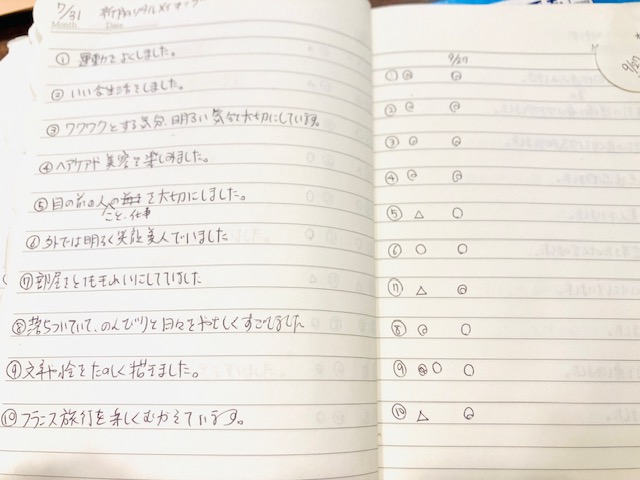 7/31 新月リアルメイキング
Month Date
① 運動をよくしました。
② いい食生活をしました。
③ ワクワクとする気分、明るい気分を大切にしています。
④ ヘアケアや美容を楽しみました。
⑤ 目の前の人の を大切にしました。
こと、仕事
⑥ 外では明るく笑顔美人でいました
⑦ 部屋をとてもきれいにしていました
⑧ 落ちついていて、のんびりと日々をやさしくすごしました
⑨ 文章や絵をたのしく描きました。
⑩ フランス旅行を楽しくむかえています。
9/27
① ◎ ◎
② ◎ ◎
③ ◎ ◎
④ ◎ ◎
⑤ △ ○
⑥ ○ ○
⑦ △ ◎
⑧ ◎ ○
⑨ ○ ○
⑩ △ ◎
9/27